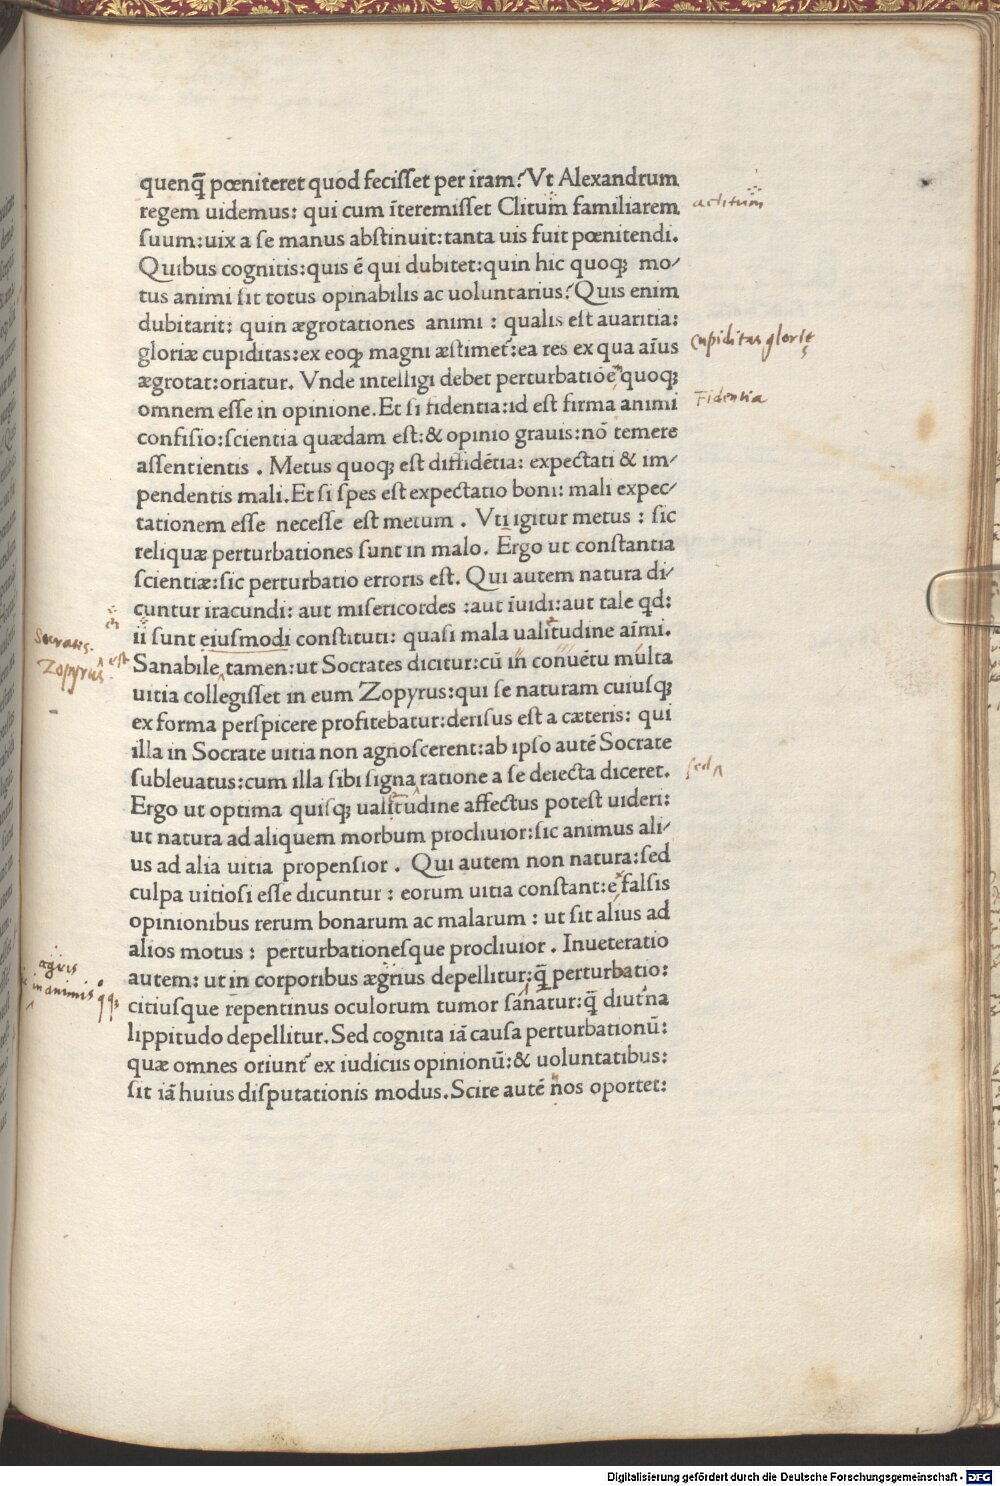 quenq̄ pœniteret quod feciſſet per iram? Vt Alexandrum
regem uidemus: qui cum īteremiſſet Clitum familiarem
ſuum: uix a ſe manus abſtinuit: tanta uis fuit pœnitendi.
Quibus cognitis: quis ē qui dubitet: quin hic quoqꝫ mo/
tus animi ſit totus opinabilis ac uoluntarius? Quis enim
dubitarit: quin ægrotationes animi: qualis eſt auaritia:
gloriæ cupiditas: ex eoqꝫ magni æſtimet̄: ea res ex qua aīus
ægrotat: oriatur. Vnde intelligi debet perturbatiōē quoqꝫ
omnem eſſe in opinione. Et ſi fidentia: id eſt firma animi
confiſio: ſcientia quædam eſt: & opinio grauis: nō temere
aſſentientis. Metus quoqꝫ eſt diffidētia: expectati & im/
pendentis mali. Et ſi ſpes eſt expectatio boni: mali expec/
tationem eſſe neceſſe eſt metum. Vti igitur metus: ſic
reliquæ perturbationes ſunt in malo. Ergo ut conſtantia
ſcientiæ: ſic perturbatio erroris eſt. Qui autem natura di/
cuntur iracundi: aut miſericordes: aut īuidi: aut tale qd:
ii ſunt eiuſmodi conſtituti: quaſi mala ualitudine aīmi.
Sanabile tamen: ut Socrates dicitur: cū in conuētu multa
uitia collegiſſet in eum Zopyrus: qui ſe naturam cuiuſqꝫ
ex forma perſpicere profitebatur: deriſus eſt a cæteris: qui
illa in Socrate uitia non agnoſcerent: ab ipſo autē Socrate
ſubleuatus: cum illa ſibi ſigna ratione a ſe deiecta diceret.
Ergo ut optima quiſqꝫ ualitudine affectus poteſt uideri:
ut natura ad aliquem morbum procliuior: ſic animus ali/
us ad alia uitia propenſior. Qui autem non natura: ſed
culpa uitioſi eſſe dicuntur: eorum uitia conſtant: e falſis
opinionibus rerum bonarum ac malarum: ut ſit alius ad
alios motus: perturbationeſque procliuior. Inueteratio
autem: ut in corporibus ægrius depellitur: q̄ perturbatio:
citiuſque repentinus oculorum tumor ſanatur: q̄ diut̄na
lippitudo depellitur. Sed cognita iā cauſa perturbationū:
quæ omnes oriunt̄ ex iudiciis opinionū: & uoluntatibus:
ſit iā huius diſputationis modus. Scire autē nos oportet:
aclitum
cupiditas glorię
Fidentia
Socrates.
Zopyrus
est
sed
ægris
in animis qqꝫ
Digitalisierung gefördert durch die Deutsche Forschungsgemeinschaft - DFG